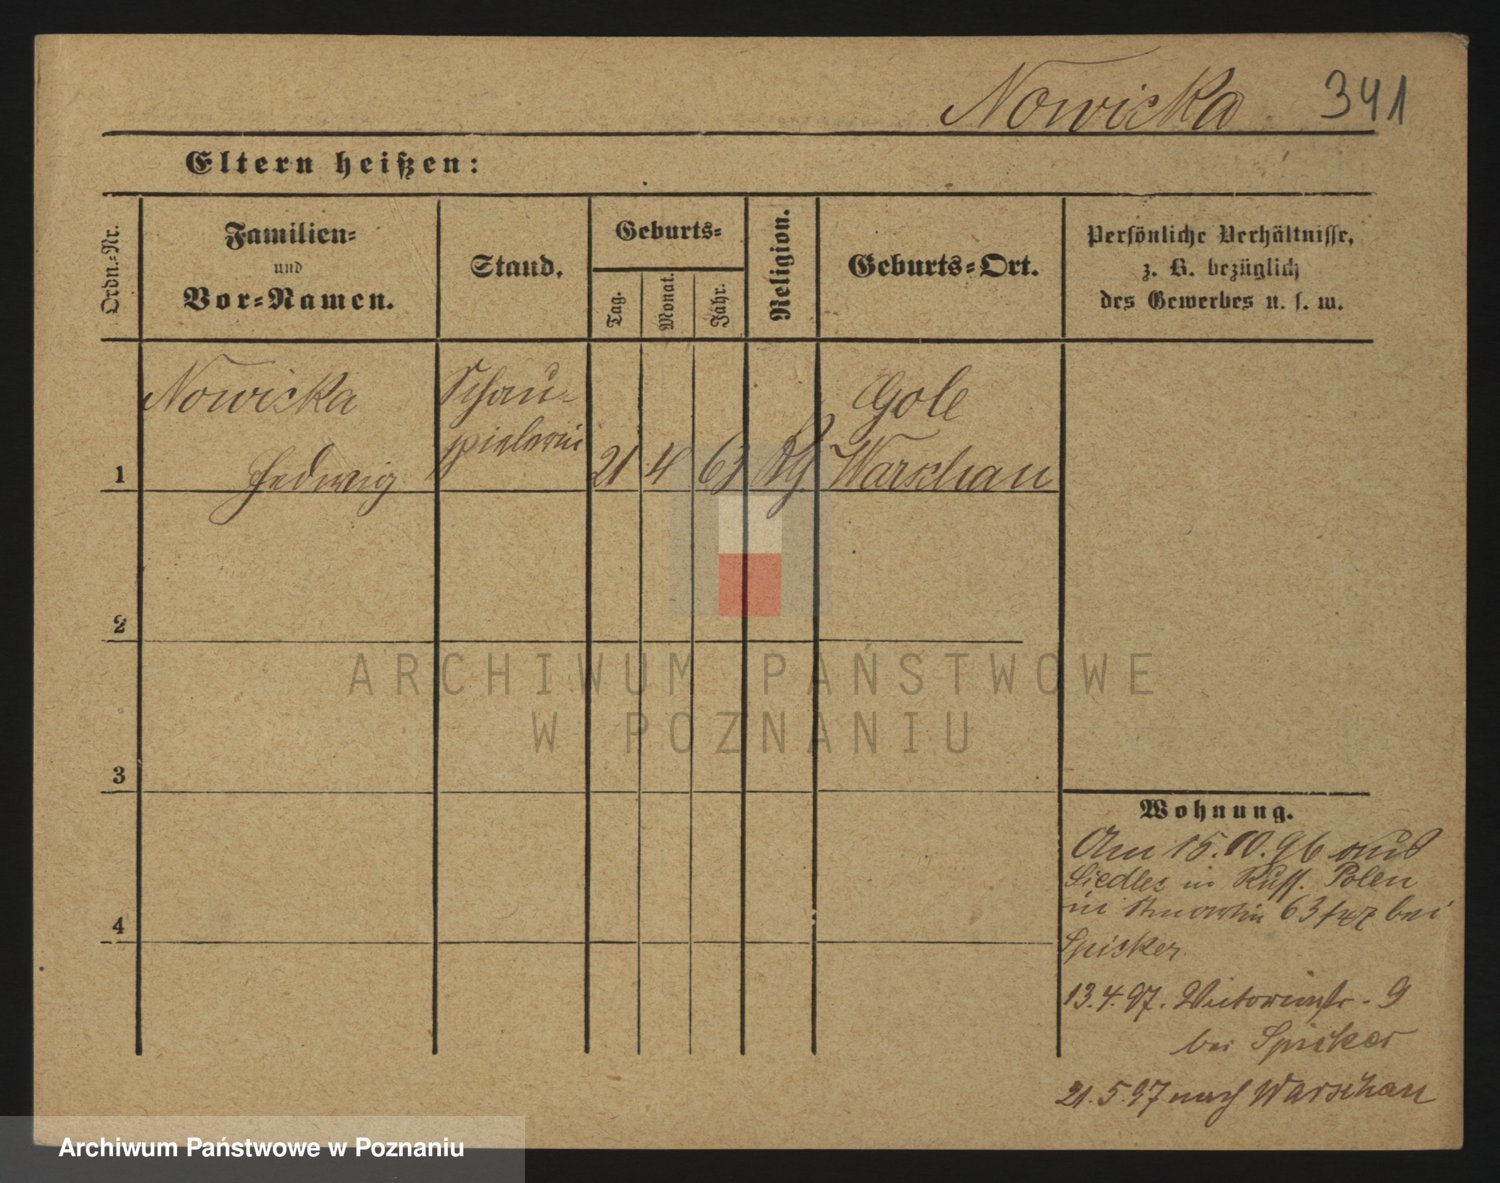 Nowicka 341
Eltern heißen:
Ordn.-Nr.
Familien-
und
Vor-Namen.
Stand.
Geburts-
Tag.
Monat.
Jahr.
Religion.
Geburts-Ort.
Persönliche Verhältnisse,
z. B. bezüglich
des Gewerbes u. s. w.
1
Nowicka
Hedwig
Schau-
spielerin
21
4
63
Gole
Warschau
2
3
4
Wohnung.
Am 15.10.96 aus
Siedlec in Russ. Polen
in 63 bei
Spicker
13.4.97. Victoriastr. 9
bei Spicker
21.5.97 nach Warschau
ARCHIWUM PAŃSTWOWE
W POZNANIU
Archiwum Państwowe w Poznaniu